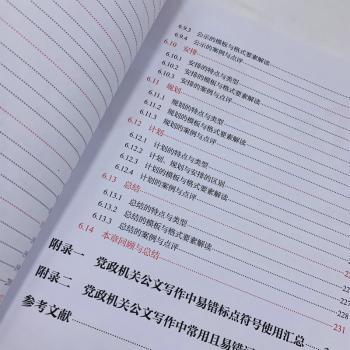 6.9.3 公示的模板与格式要素解读
6.9.4 公示的案例与点评
6.10 安排
6.10.1 安排的特点与类型
6.10.2 安排的模板与格式要素解读
6.10.3 安排的案例与点评
6.11 规划
6.11.1 规划的特点与类型
6.11.2 规划的模板与格式要素解读
6.11.3 规划的案例与点评
6.12 计划
6.12.1 计划的特点与类型
6.12.2 计划、规划与安排的区别
6.12.3 计划的模板与格式要素解读
6.12.4 计划的案例与点评
6.13 总结
6.13.1 总结的特点与类型
6.13.2 总结的模板与格式要素解读
6.13.3 总结的案例与点评 228
6.14 本章回顾与总结 231
附录一 党政机关公文写作中易错标点符号使用汇总
附录二 党政机关公文写作中常用且易错
参考文献